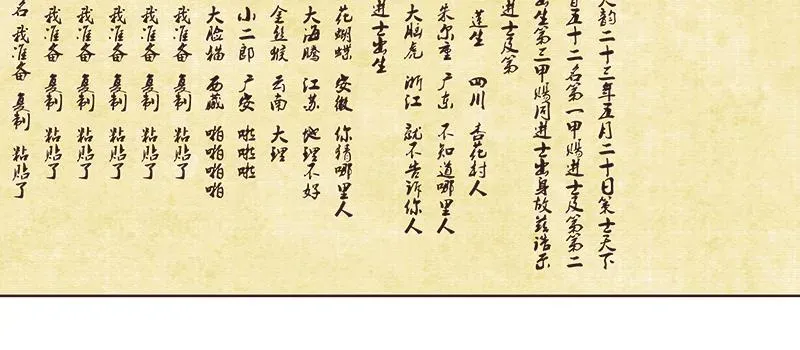 韵二十三年五月二十日策士天下
百五十二名第一甲赐进士及第第二
出生第三甲赐同进士出身故兹诰示
进士及第
莲生 四川 杏花村人
朱尔重 广东 不知道哪里人
大脑虎 浙江 就不告诉你人
进士出生
花蝴蝶 安徽 你猜哪里人
大海腾 江苏 地理不好
金丝猴 云南 大理
小二郎 广安 啦啦啦
大脸猫 西藏 啪啪啪啪
我准备 复制 粘贴了
我准备 复制 粘贴了
我准备 复制 粘贴了
我准备 复制 粘贴了
我准备 复制 粘贴了
名 我准备 复制 粘贴了